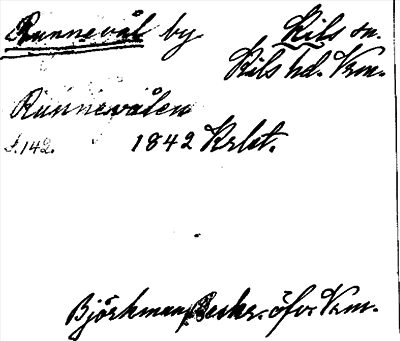 Runnevål by Kils sn.
Kils hd. Vrm.
Runnevålen
s. 142. 1842 Krbt.
Björkman, Beskr. öfv. Vrm.